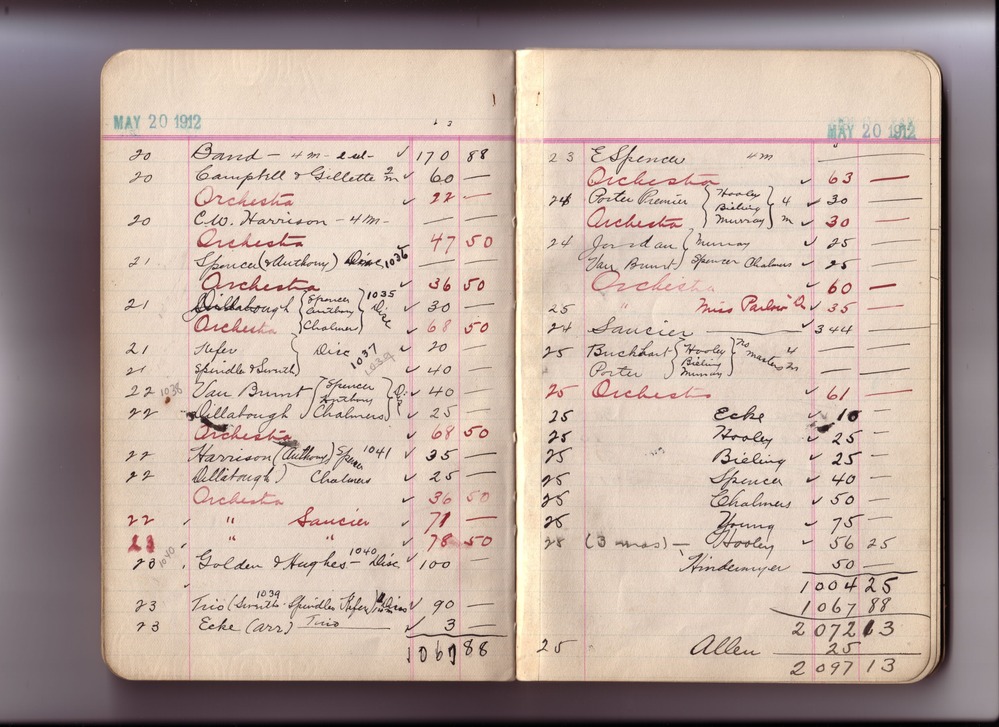 MAY 20 1912
20 Band - 4 m - 2 sel - ✓ 170 88
20 Campbell & Gillette 2 m ✓ 60 —
Orchestra ✓ 22 —
20 C.W. Harrison - 4 m - — —
Orchestra 47 50
21 Spencer (& Anthony) Disc 1036 — —
Orchestra ✓ 36 50
21 Dillabough { Spencer Anthony Chalmers } 1035 Disc ✓ 30 —
Orchestra ✓ 68 50
21 Kefer } Disc 1037 ✓ 20 —
21 Spindle & Smith 1039 ✓ 40 —
22 1038 Van Brunt { Spencer Anthony Chalmers } Disc ✓ 40 —
22 Dillabough ✓ 25 —
Orchestra ✓ 68 50
22 Harrison (Anthony) Spencer 1041 ✓ 35 —
22 Dillabough) Chalmers ✓ 25 —
Orchestra ✓ 36 50
22 " Saucier ✓ 71 —
23 " " ✓ 78 50
23 1040 Golden & Hughes - 1040 Disc ✓ 100 —
23 Trio (Smith Spindler Kefer) 1039 Disc ✓ 90 —
23 Ecke (arr) Trio ✓ 3 —
1067 88
MAY 20 1912
23 E Spencer 4 m —
Orchestra ✓ 63 —
24 Porter Premier { Hooley Bieling Murray } 4 m ✓ 30 —
Orchestra ✓ 30 —
24 Jordan { Murray ✓ 25 —
Van Brunt } Spencer Chalmers ✓ 25 —
Orchestra ✓ 60 —
25 " Miss Parlow ✓ 35 —
24 Saucier ✓ 344 —
25 Buckhart } { Hooley Bieling Murray } No masters — —
Porter — —
25 Orchestra ✓ 61 —
25 Ecke ✓ 10 —
25 Hooley ✓ 25 —
25 Bieling ✓ 25 —
25 Spencer ✓ 40 —
25 Chalmers ✓ 50 —
25 Young ✓ 75 —
25 (3 mas) - Hooley 56 25
Hindermyer 50 —
1004 25
1067 88
2072 13
25 Allen 25 —
2097 13